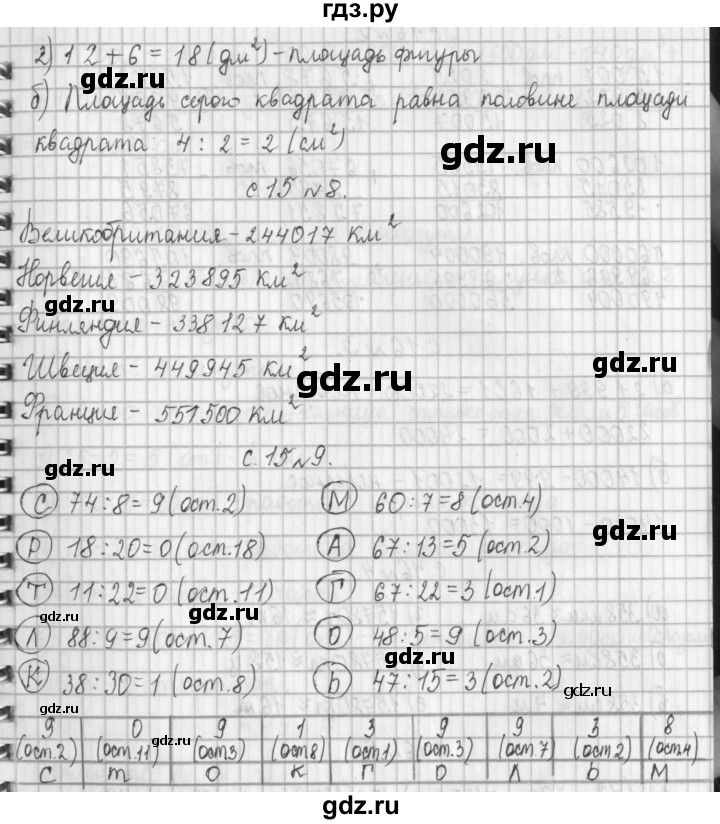 гдз.ру
2) 12 + 6 = 18 (дм²) – площадь фигуры
gdz.ru
б) Площадь серого квадрата равна половине площади
квадрата 4 : 2 = 2 (см²)
gdz.ru
с. 15 №8.
Великобритания – 244017 км²
Норвегия – 323895 км²
gdz.ru
Финляндия – 338127 км²
gdz.ru
Швеция – 449945 км²
gdz.ru
Франция – 551500 км²
с. 15 №9.
gdz.ru
С 74 : 8 = 9 (ост. 2) М 60 : 7 = 8 (ост. 4)
gdz.ru
Р 18 : 20 = 0 (ост. 18) А 67 : 13 = 5 (ост. 2)
Т 11 : 22 = 0 (ост. 11) Г 67 : 22 = 3 (ост. 1)
gdz.ru
Л 88 : 9 = 9 (ост. 7) О 48 : 5 = 9 (ост. 3)
К 38 : 30 = 1 (ост. 8) Ь 47 : 15 = 3 (ост. 2)
gdz.ru
gdz.ru
9 0 9 1 3 9 9 3 8
(ост. 2) (ост. 11) (ост 3) (ост 8) (ост 1) (ост. 3) (ост. 7) (ост 2) (ост. 4)
gdz.ru
С т О К Г О Л Ь М
gdz.ru